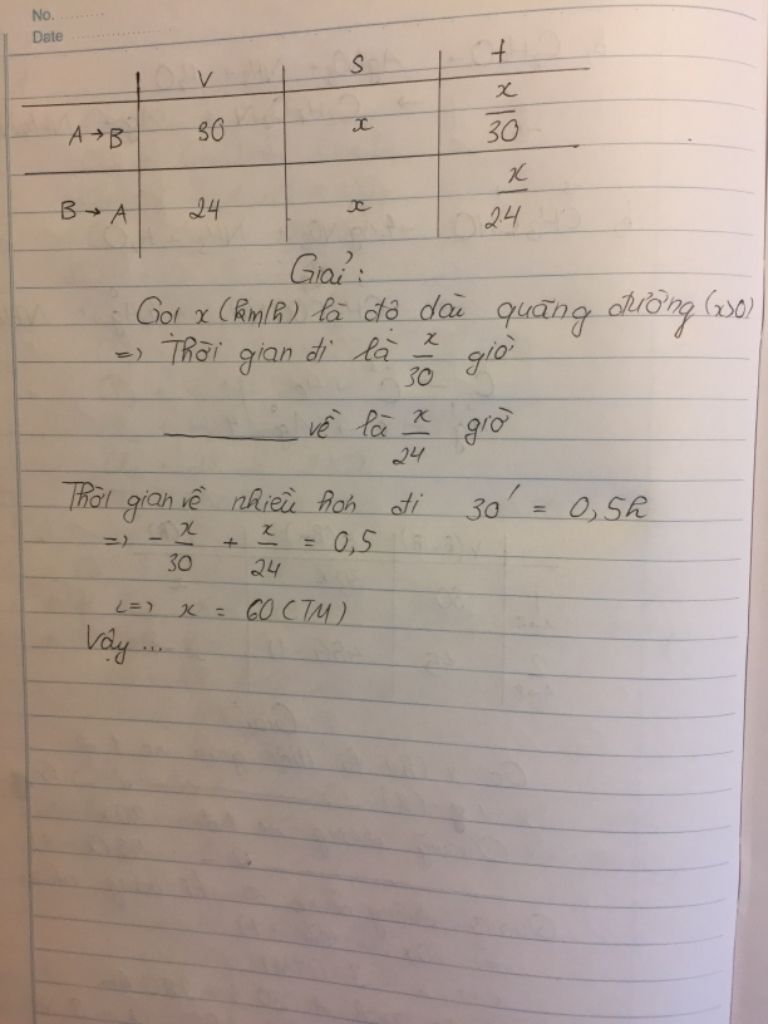 No. ..........
Date ....................
V S t
A → B 30 x x/30
B → A 24 x x/24
Giải:
Gọi x (km/h) là độ dài quãng đường (x>0)
=> Thời gian đi là x/30 giờ
________ về là x/24 giờ
Thời gian về nhiều hơn đi 30' = 0,5h
=> - x/30 + x/24 = 0,5
<=> x = 60 (TM)
Vậy ...